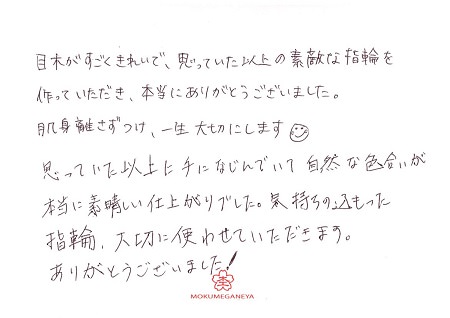 目木がすごくきれいで、思っていた以上の素敵な指輪を
作っていただき、本当にありがとうございました。
肌身離さずつけ、一生大切にします
思っていた以上に手になじんでいて自然な色合いが
本当に素晴しい仕上がりでした。気持ちの込もった
指輪、大切に使わせていただきます。
ありがとうございました!
MOKUMEGANEYA